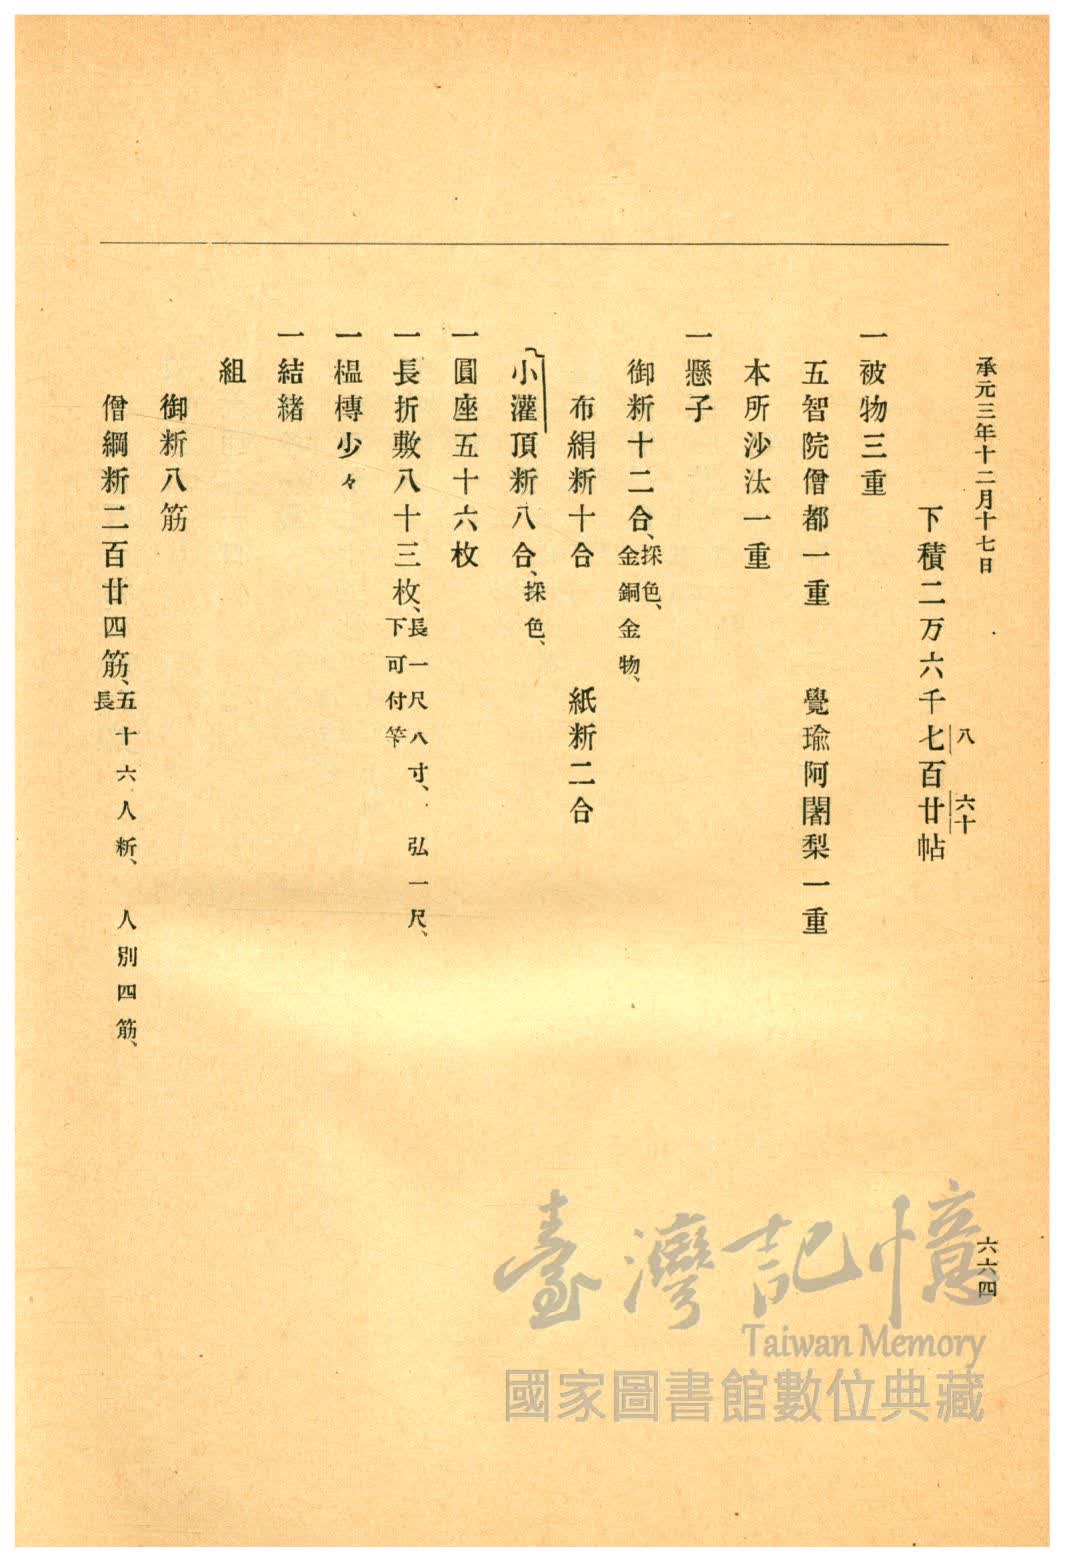 承元三年十二月十七日
六六四
八 六十
下積二万六千七百廿帖
一被物三重
五智院僧都一重 覺瑜阿闍梨一重
本所沙汰一重
一懸子
御新十二合、採色、
金銅金物、
布絹新十合 紙新二合
小灌頂新八合、採色、
一圓座五十六枚
一長折敷八十三枚、長一尺八寸、弘一尺、
下可付竿
一榅榑少々
一結緒
組
御新八筋
僧綱新二百廿四筋、五十六人新、人別四筋、
長
臺灣記憶
Taiwan Memory
國家圖書館數位典藏